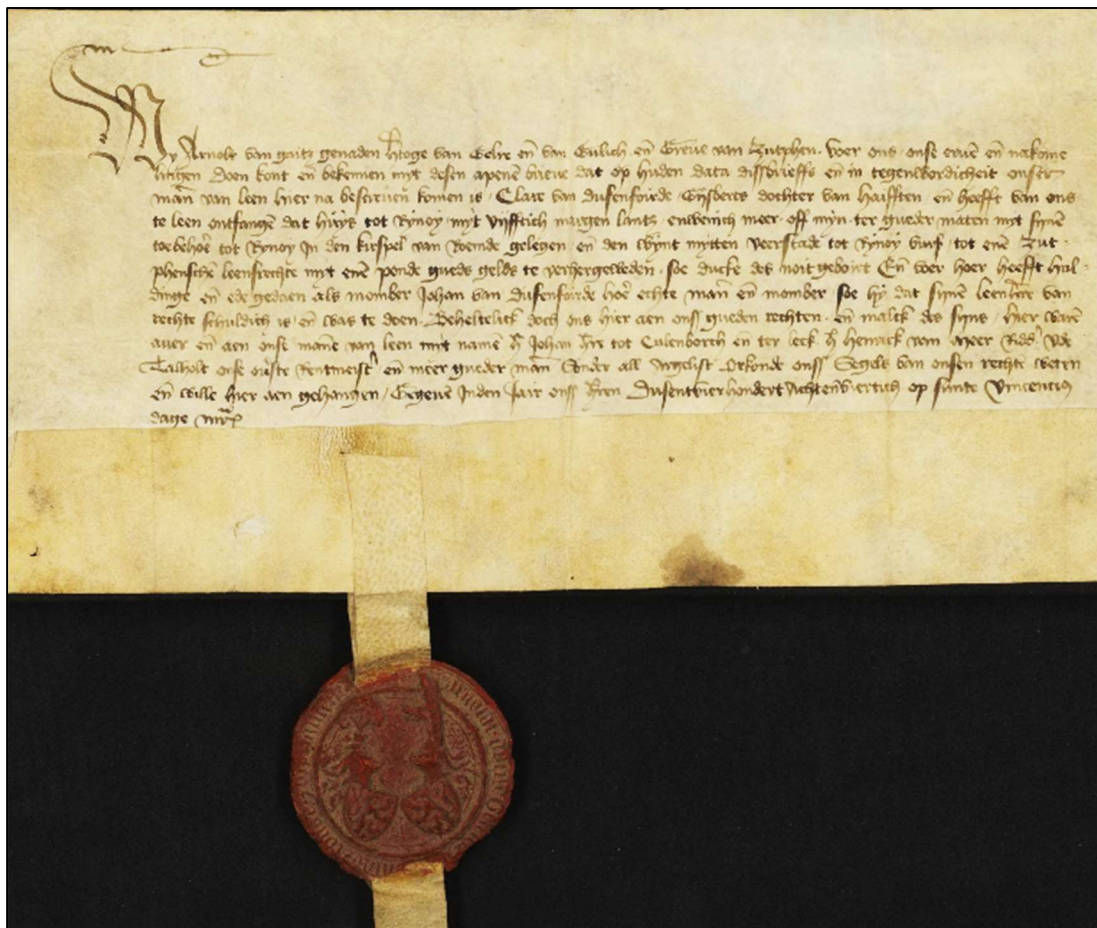 Wy Arnolt van gaitz genaden htoge van Gelre en̄ van Guilich en̄ Greue van Zutphen. voer ons onse eruen en̄ nakome
lingen Doen kont en̄ bekennen myt desen apenen brieue dat op huden data dissbrieffs en̄ in tegenwordicheit onser
man̄ van leen hier na bescreuen komen is Clare van dusenfoirde Gysberts dochter van haifften en̄ heefft van ons
te leen ontfangē dat huys tot Rynoy myt vyfftich margen lantz enwenich meer off myn ter gueder maten myt synē
toebehoē tot Rynoy In den kirspel van gelegen en̄ den wynt mytten veerstade tot Rynoy tot enē Zut
phenschē leenrechte myt enē ponde gueds gelds te verhergeweden. soe ducke des noit geboirt En̄ voer hoer heefft hul
dinge en̄ ede gedaen als momber Johan van dusenfoirde hoē echte man̄ en̄ momber soe hy dat synē leenhre van
rechte schuldich is en̄ was te doen. Beheltelick doch ons hier aen onss gueden rechten. en̄ malck des syns / hier warē
auer en̄ aen onse manē van leen mit namē h̄ Johan hr̄e tot Culenborch en̄ ter leck h̄ Henrick vom
Talholt onse ouerste Rentmeistr en̄ meer gueder man̄ Sonder all argelist Orkonde onss Segels van onsen rechte weten
en̄ wille hier aen gehangen / Gegeuē Inden Jair onss hr̄en Dusentvierhondert Achtenvertich op sunte Vincencius
dage mr̄is